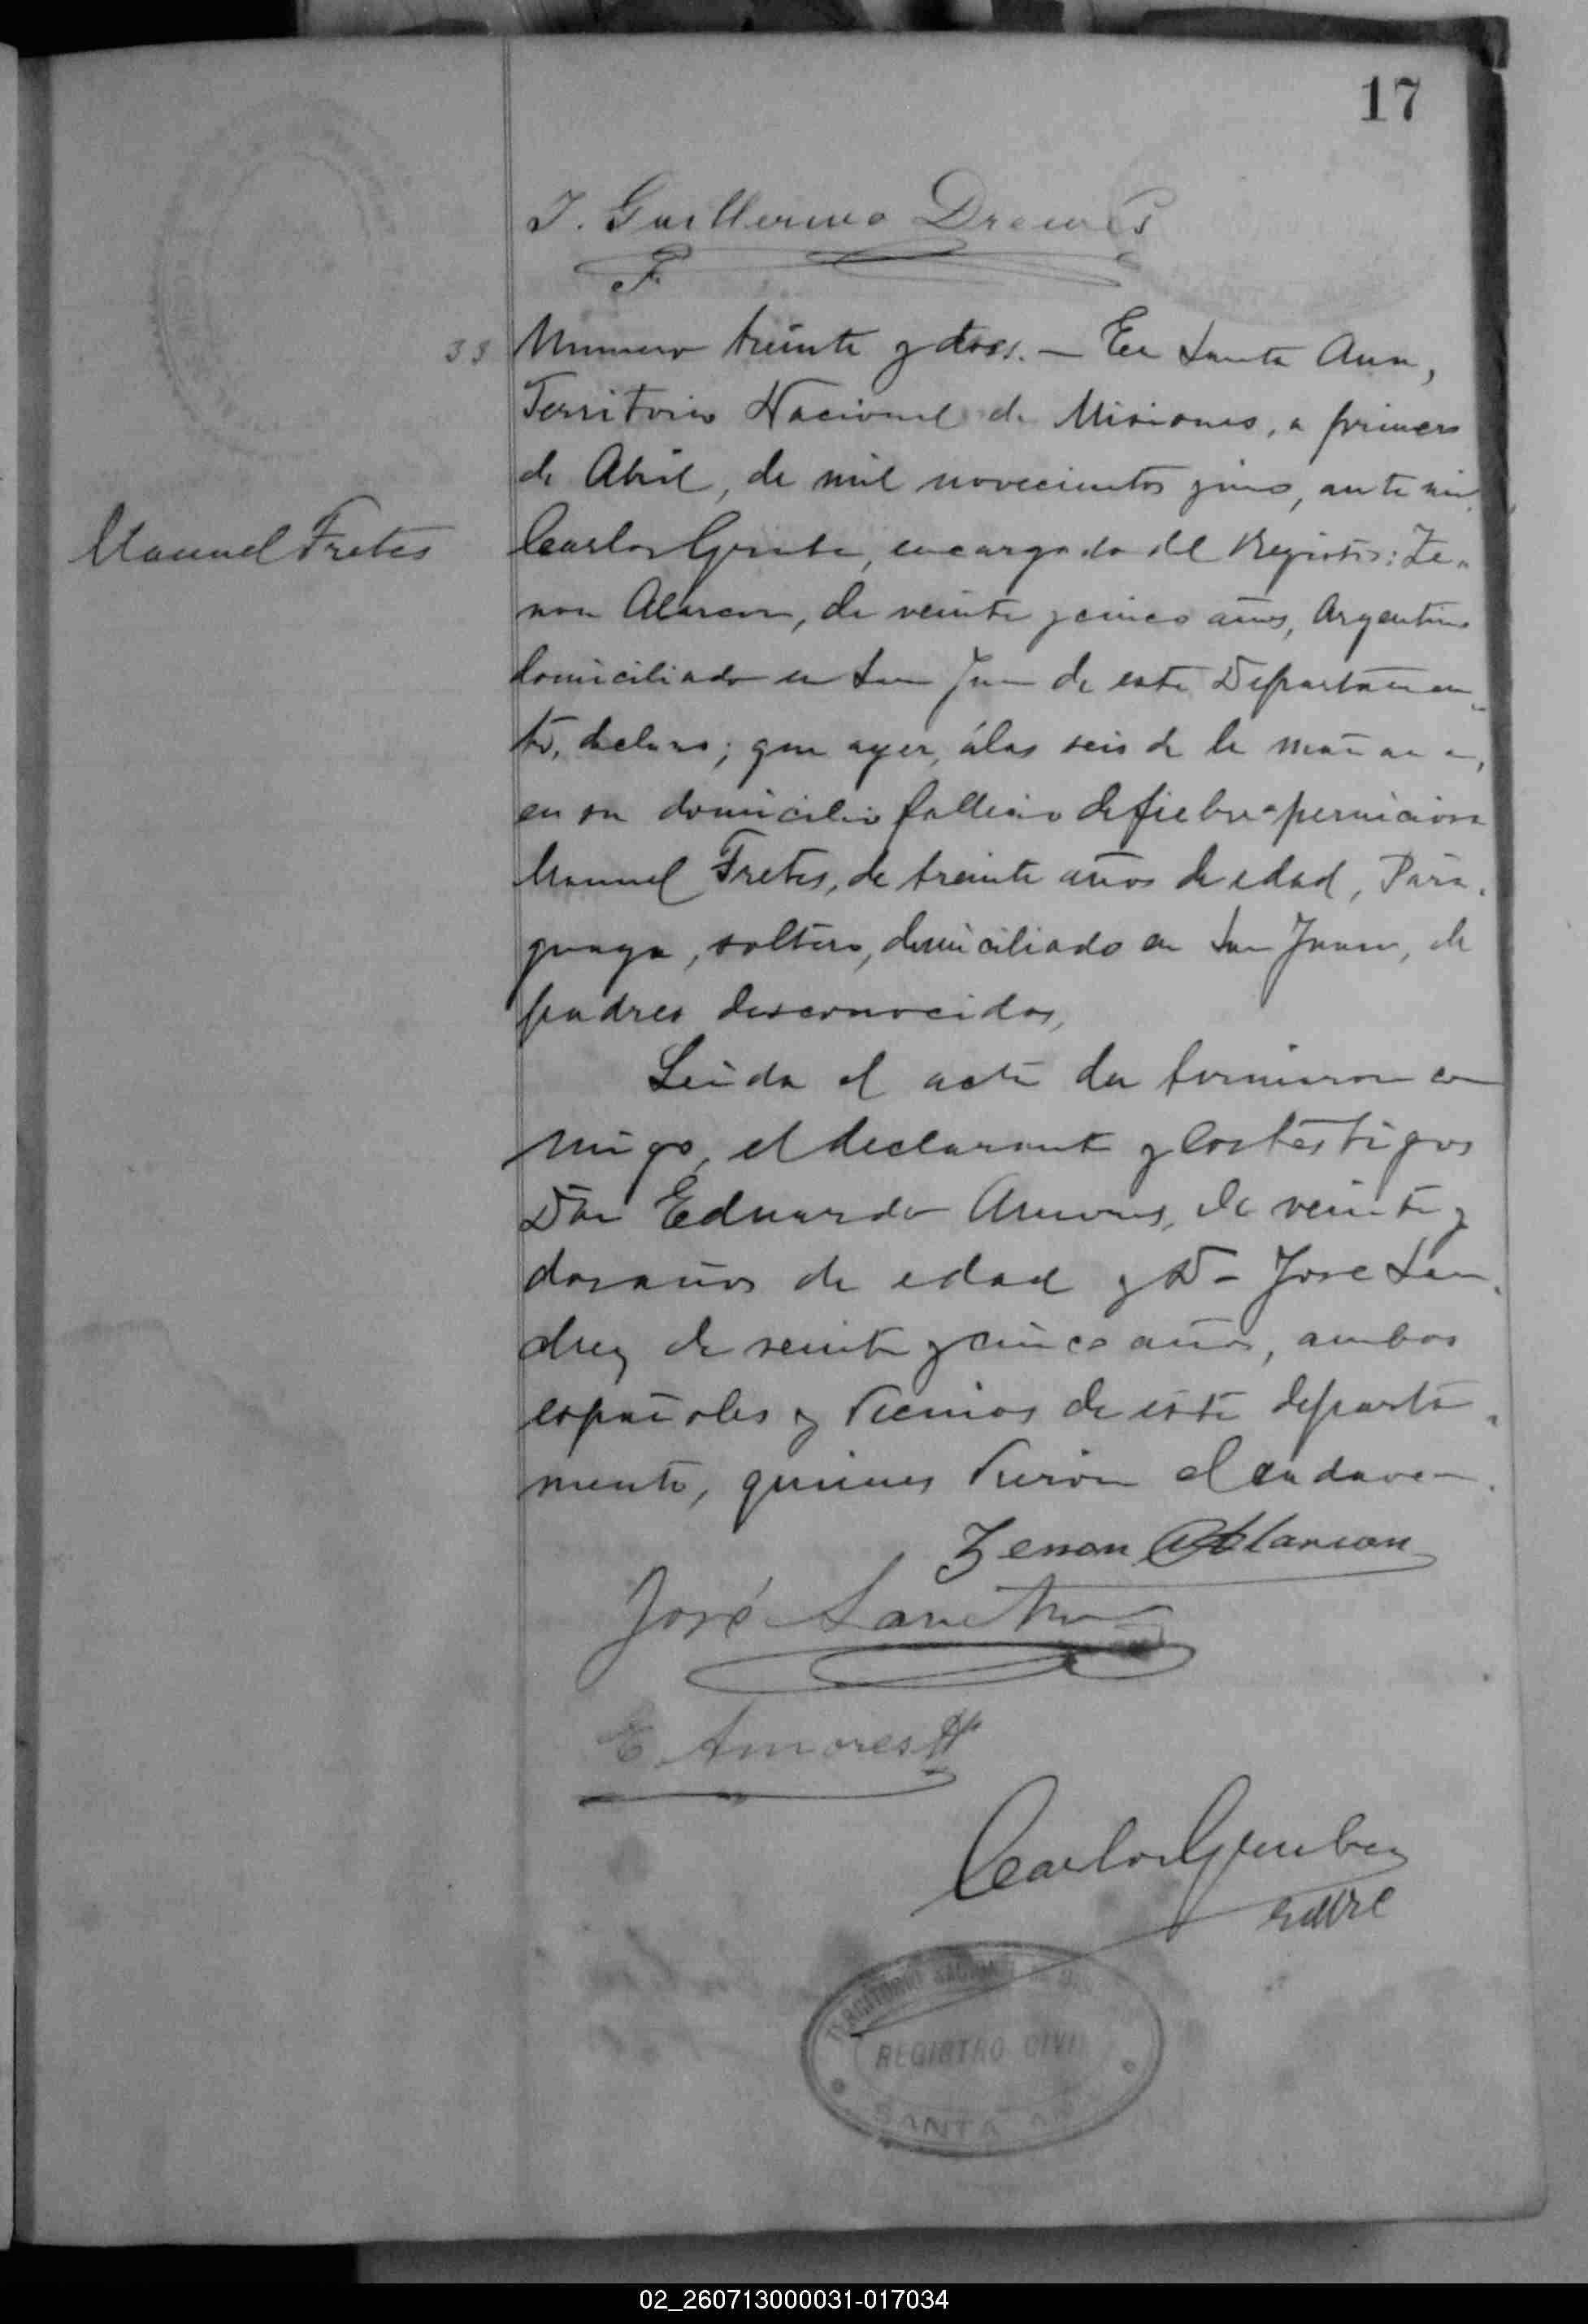 17
J. Guillermo Drewes
33
Numero treinta y dos. — En Santa Ana,
Territorio Nacional de Misiones, a primero
de Abril, de mil novecientos y uno, ante mi
Manuel Fretes
Carlos Gruber, encargado del Registro: Ze-
non Alarcon, de veinte y cinco años, Argentino
domiciliado en San Juan de este Departamen-
to, declaro; que ayer, á las seis de la mañana,
en su domicilio fallecio de fiebre perniciosa
Manuel Fretes, de treinta años de edad, Para-
guayo, soltero, domiciliado en San Juan, de
padres desconocidos,
Leida el acta la firmaron con
migo, el declarante y los testigos
Don Eduardo Amores, de veinte y
dos años de edad y Dn José San
de veinte y cinco años, ambos
españoles y vecinos de este departa-
mento, quienes vieron el cadaver.
Zenon Alarcon
José
E Amores
Carlos Gruber
TERRITORIO NACIONAL DE MIS
REGISTRO CIVIL
SANTA ANA
02_260713000031-017034